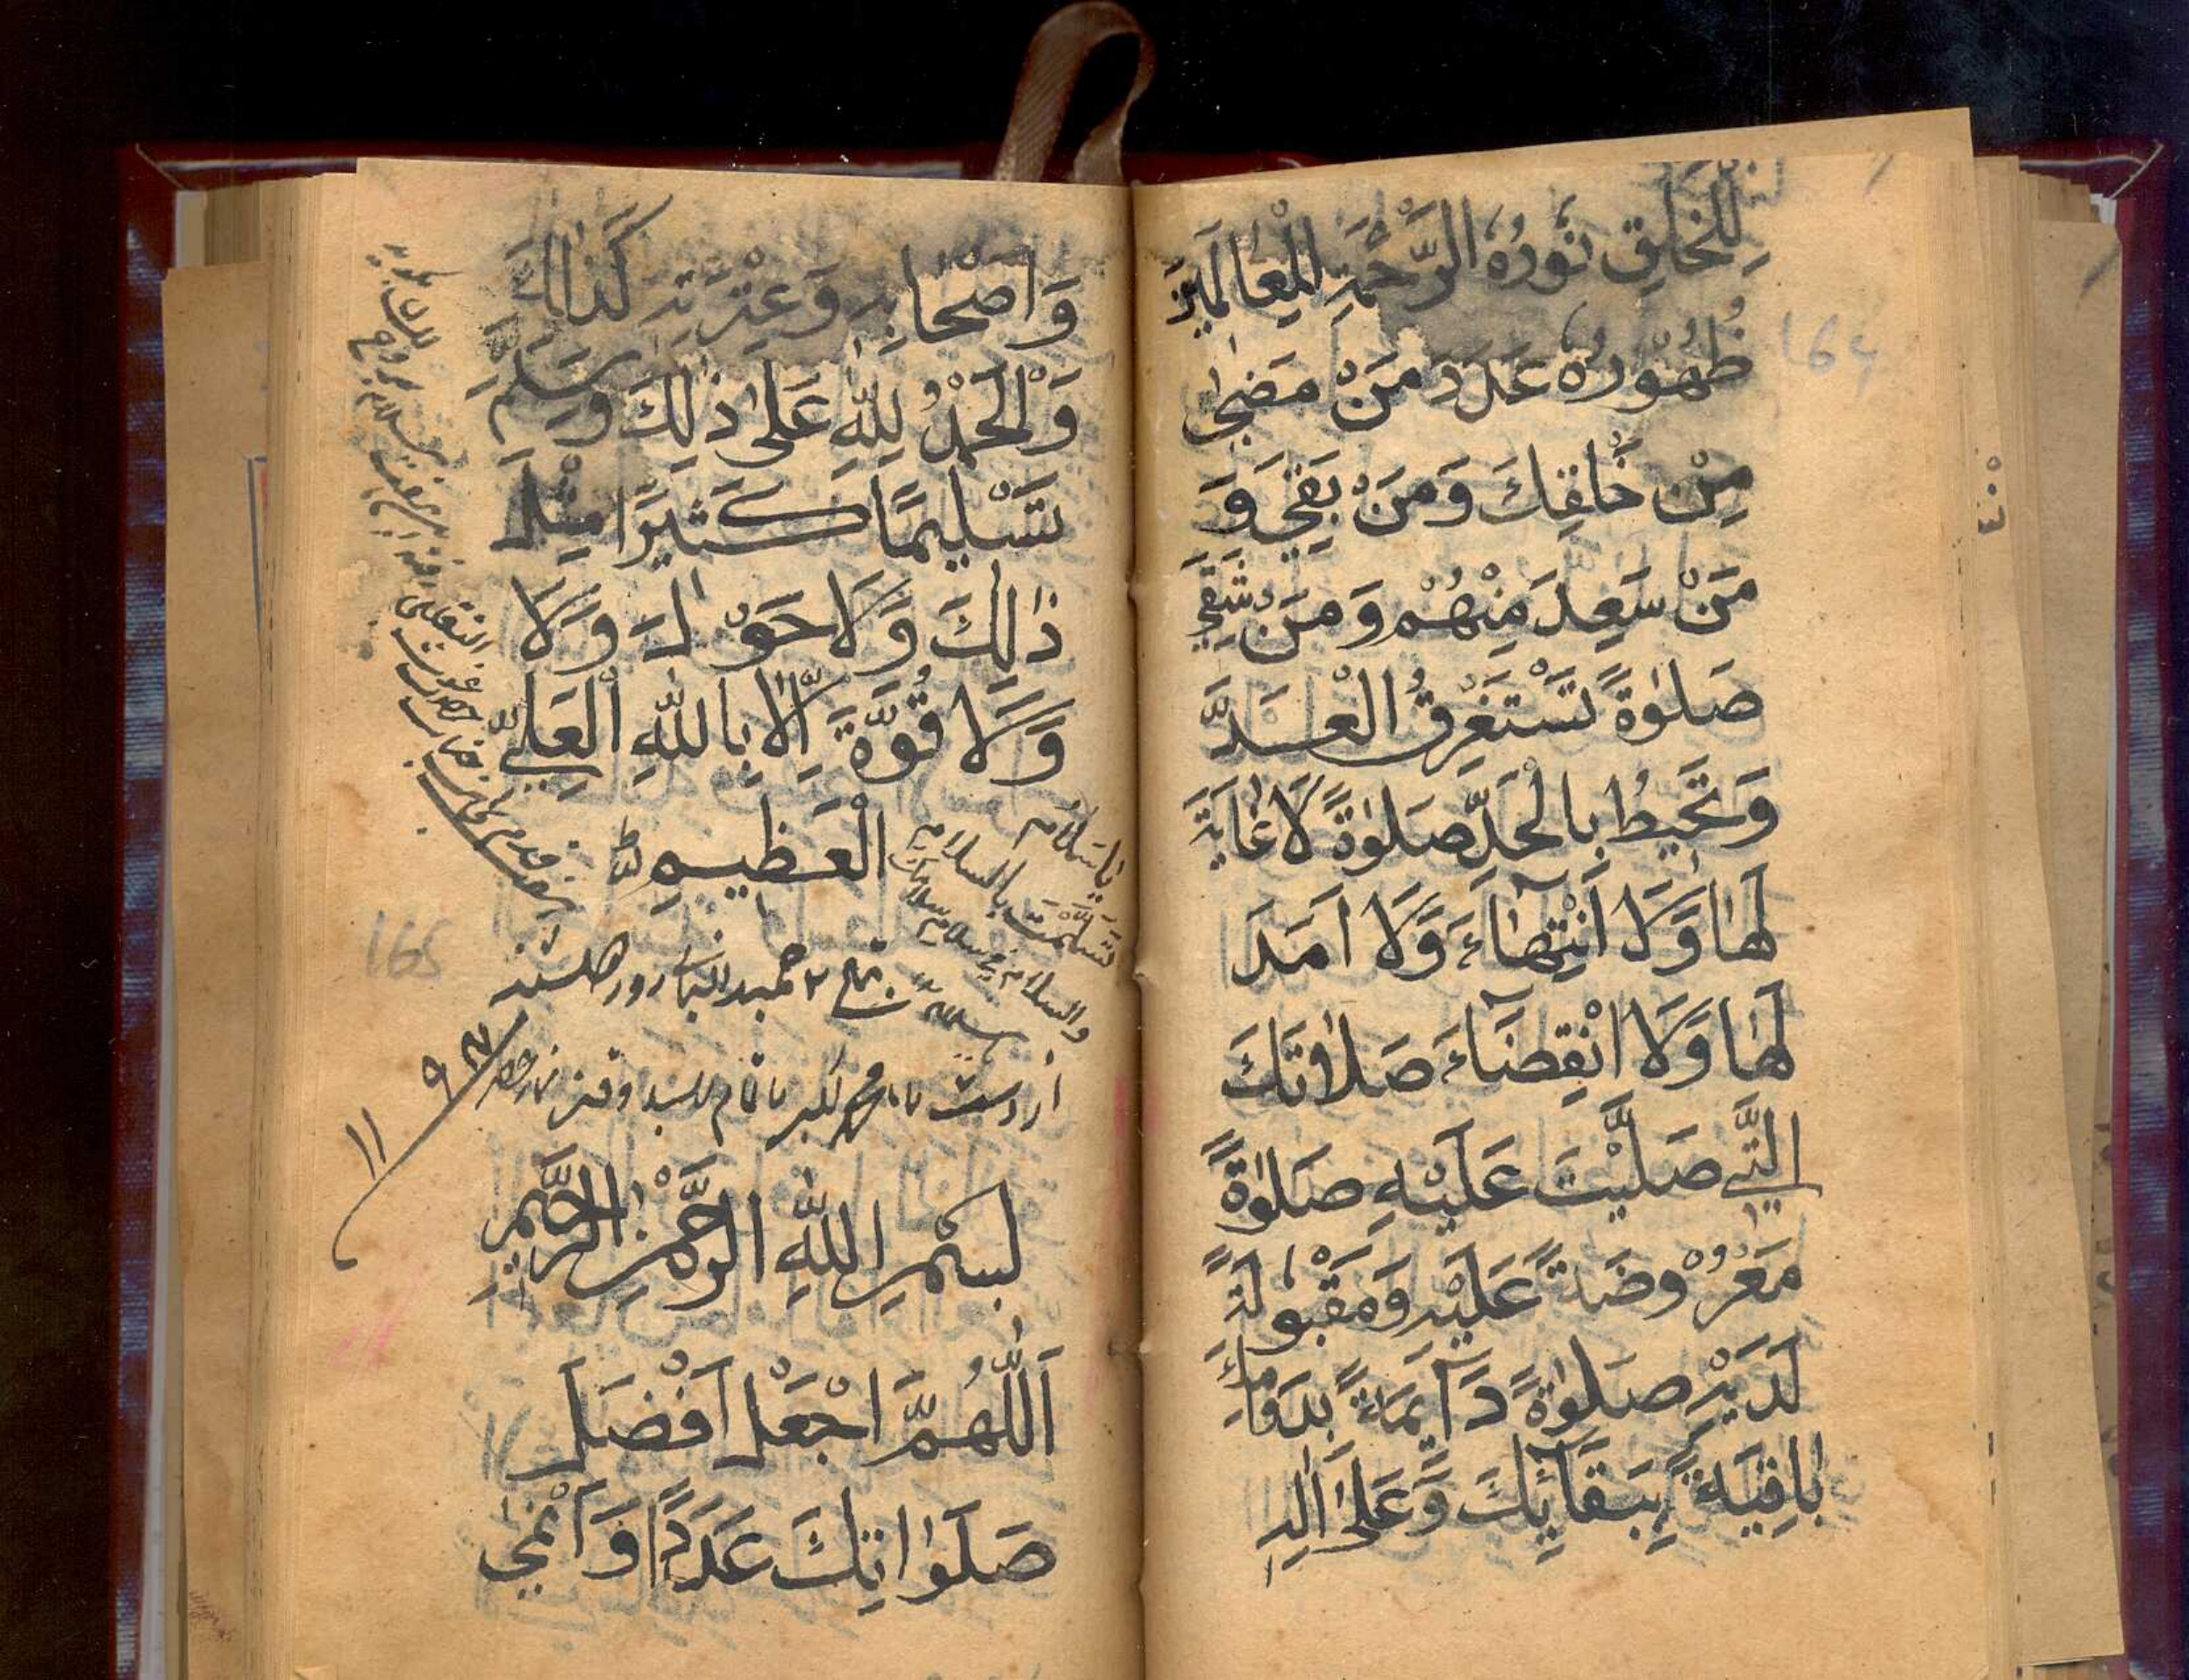 لِلْخَلْقِ نُوْرُهُ الرَّحْمَةِ لِلْعَالَمِيْنَ
ظُهُوْرُهُ عَدَدَ مَنْ مَضٰى
مِنْ خَلْقِكَ وَمَنْ بَقِيَ وَ
مَنْ سَعِدَ مِنْهُمْ وَمَنْ شَقِيَ
صَلٰوةً تَسْتَغْرِقُ الْعَدَّ
وَتُحِيْطُ بِالْحَدِّ صَلٰوةً لَا غَايَةَ
لَهَا وَلَا انْتِهَآءَ وَلَا اَمَدَ
لَهَا وَلَا انْقِضَآءَ صَلَاتَكَ
الَّتِي صَلَّيْتَ عَلَيْهِ صَلٰوةً
مَعْرُوْضَةً عَلَيْهِ وَمَقْبُوْلَةً
لَدَيْهِ صَلٰوةً دَآئِمَةً بِدَوَامِكَ
بَاقِيَةً بِبَقَآئِكَ وَعَلٰى اٰلِهِ
164
وَاَصْحَابِهِ وَعِتْرَتِهِ كَذَالِكَ
وَالْحَمْدُ لِلّٰهِ عَلٰى ذٰلِكَ وَسَلِّمْ
تَسْلِيْمًا كَثِيْرًا مِثْلَ
ذٰلِكَ وَلَا حَوْلَ وَلَا
وَلَا قُوَّةَ اِلَّا بِاللّٰهِ الْعَلِيِّ
الْعَظِيْمِ
يا سلام
تسلمت بالسلام
والسلام في سلام سلامك
165
از دست
٩٣
١١
بِسْمِ اللّٰهِ الرَّحْمٰنِ الرَّحِيْمِ
اَللّٰهُمَّ اجْعَلْ اَفْضَلَ
صَلَوَاتِكَ عَدَدًا وَاَنْمٰى